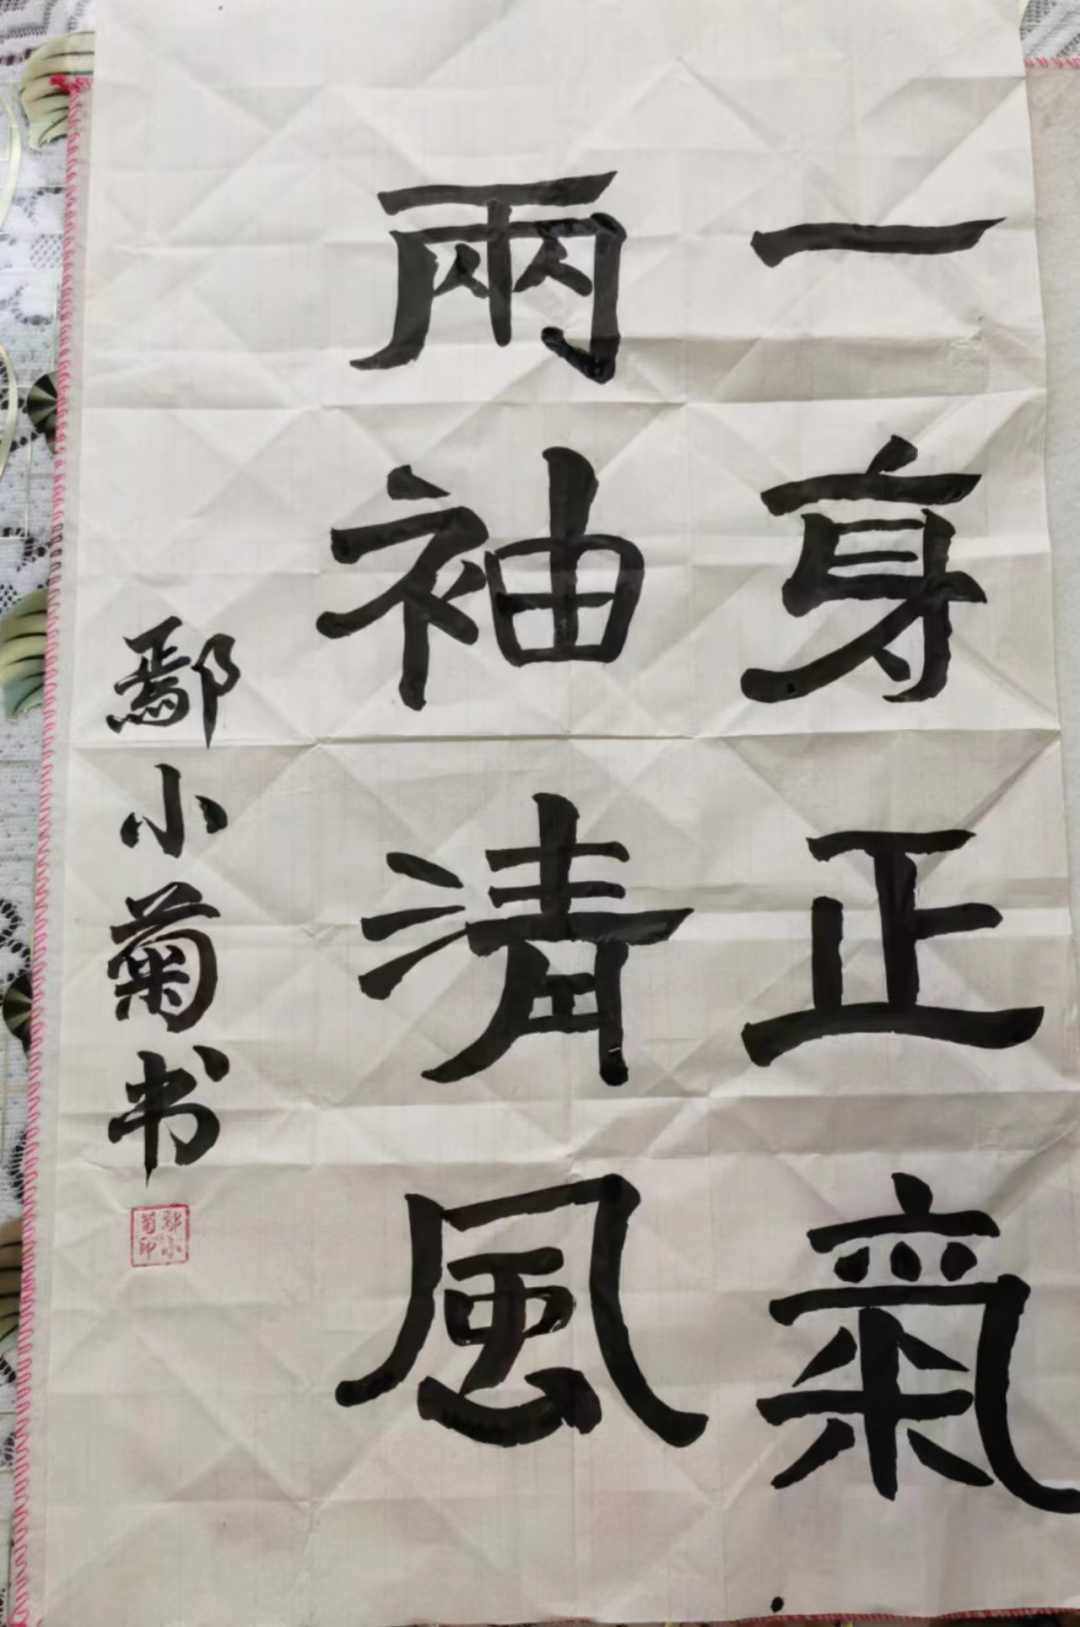 一身正氣
兩袖清風
鄢小菊书
鄢小菊印